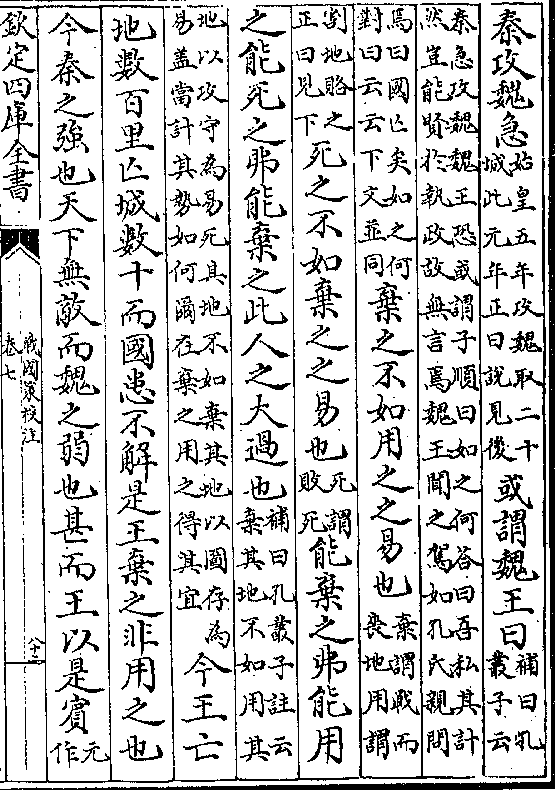 秦攻魏急始皇五年攻魏取二十城此元年正曰說見後或謂魏王曰補曰孔叢子云
秦急攻魏魏王恐或謂子順曰如之何答曰吾私其計然豈能賢於執政故無言焉魏王聞之駕如孔氏親問
焉曰國亡矣如之何對曰云云下文並同棄之不如用之之易也棄謂戰而喪地用謂
割地賂之正曰見下死之不如棄之之易也死謂敗死能棄之弗能用
之能死之弗能棄之此人之大過也補曰孔叢子註云棄其地不如用其
地以攻守為易死其地不如棄其地以圖存為易蓋當計其勢如何爾在棄之用之得其宜今王亡
地數百里亡城數十而國患不解是王棄之非用之也
今秦之強也天下無敵而魏之弱也甚而王以是賔元作
欽定四庫全書
戰國策校注
卷七